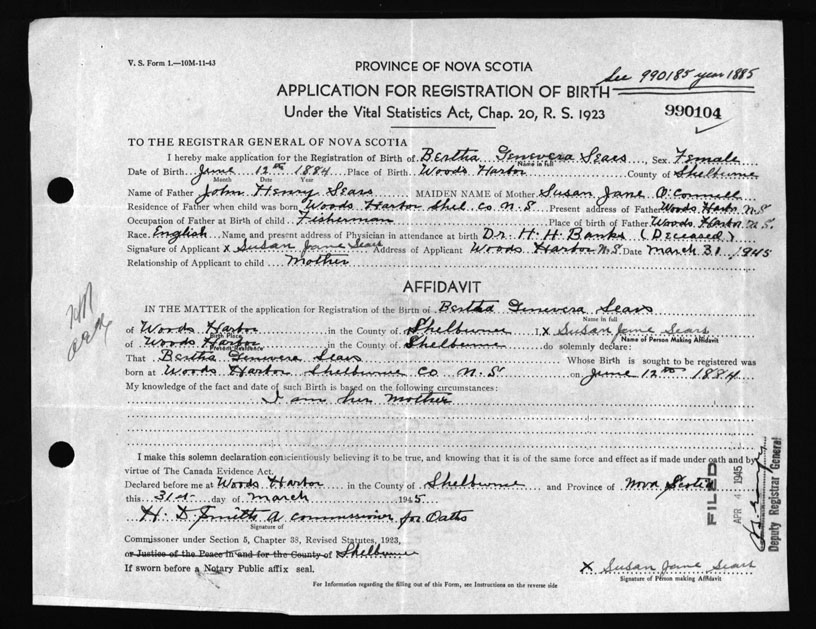 V. S. Form 1.—10M-11-43
PROVINCE OF NOVA SCOTIA
See 990185 year 1885
APPLICATION FOR REGISTRATION OF BIRTH
Under the Vital Statistics Act, Chap. 20, R. S. 1923
990104
TO THE REGISTRAR GENERAL OF NOVA SCOTIA
I hereby make application for the Registration of Birth of Bertha Genevera Sears, Sex Female
Name in full
Date of Birth June 12th 1884 Place of Birth Woods Harbor County of Shelburne
Month Date Year
Name of Father John Henry Sears MAIDEN NAME of Mother Susan Jane O'Connell
Residence of Father when child was born Woods Harbor Shel. Co N. S Present address of Father Woods Harbor N S
Occupation of Father at Birth of child Fisherman Place of birth of Father Woods Harbor N. S.
Race English Name and present address of Physician in attendance at birth Dr. H. H. Banks (Deceased)
Signature of Applicant X Susan Jane Sears Address of Applicant Woods Harbor N. S. Date March 31, 1945
Relationship of Applicant to child Mother
AFFIDAVIT
IN THE MATTER of the application for Registration of the Birth of Bertha Genevera Sears
Name in full
of Woods Harbor in the County of Shelburne I, X Susan Jane Sears
Birth Place Name of Person Making Affidavit
of Woods Harbor in the County of Shelburne do solemnly declare:
Present Residence
That Bertha Genevera Sears Whose Birth is sought to be registered was
born at Woods Harbor Shelburne Co N. S on June 12th 1884
My knowledge of the fact and date of such Birth is based on the following circumstances:
I am her mother
I make this solemn declaration conscientiously believing it to be true, and knowing that it is of the same force and effect as if made under oath and by
virtue of The Canada Evidence Act.
Declared before me at Woods Harbor in the County of Shelburne and Province of Nova Scotia
this 31st day of March 1945
H. D. Smith A commissioner for Oaths
Signature of
Commissioner under Section 5, Chapter 38, Revised Statutes, 1923,
or Justice of the Peace in and for the County of Shelburne
If sworn before a Notary Public affix seal.
X Susan Jane Sears
Signature of Person making Affidavit
For Information regarding the filling out of this Form, see Instructions on the reverse side
FILED
APR 4 1945
Deputy Registrar General